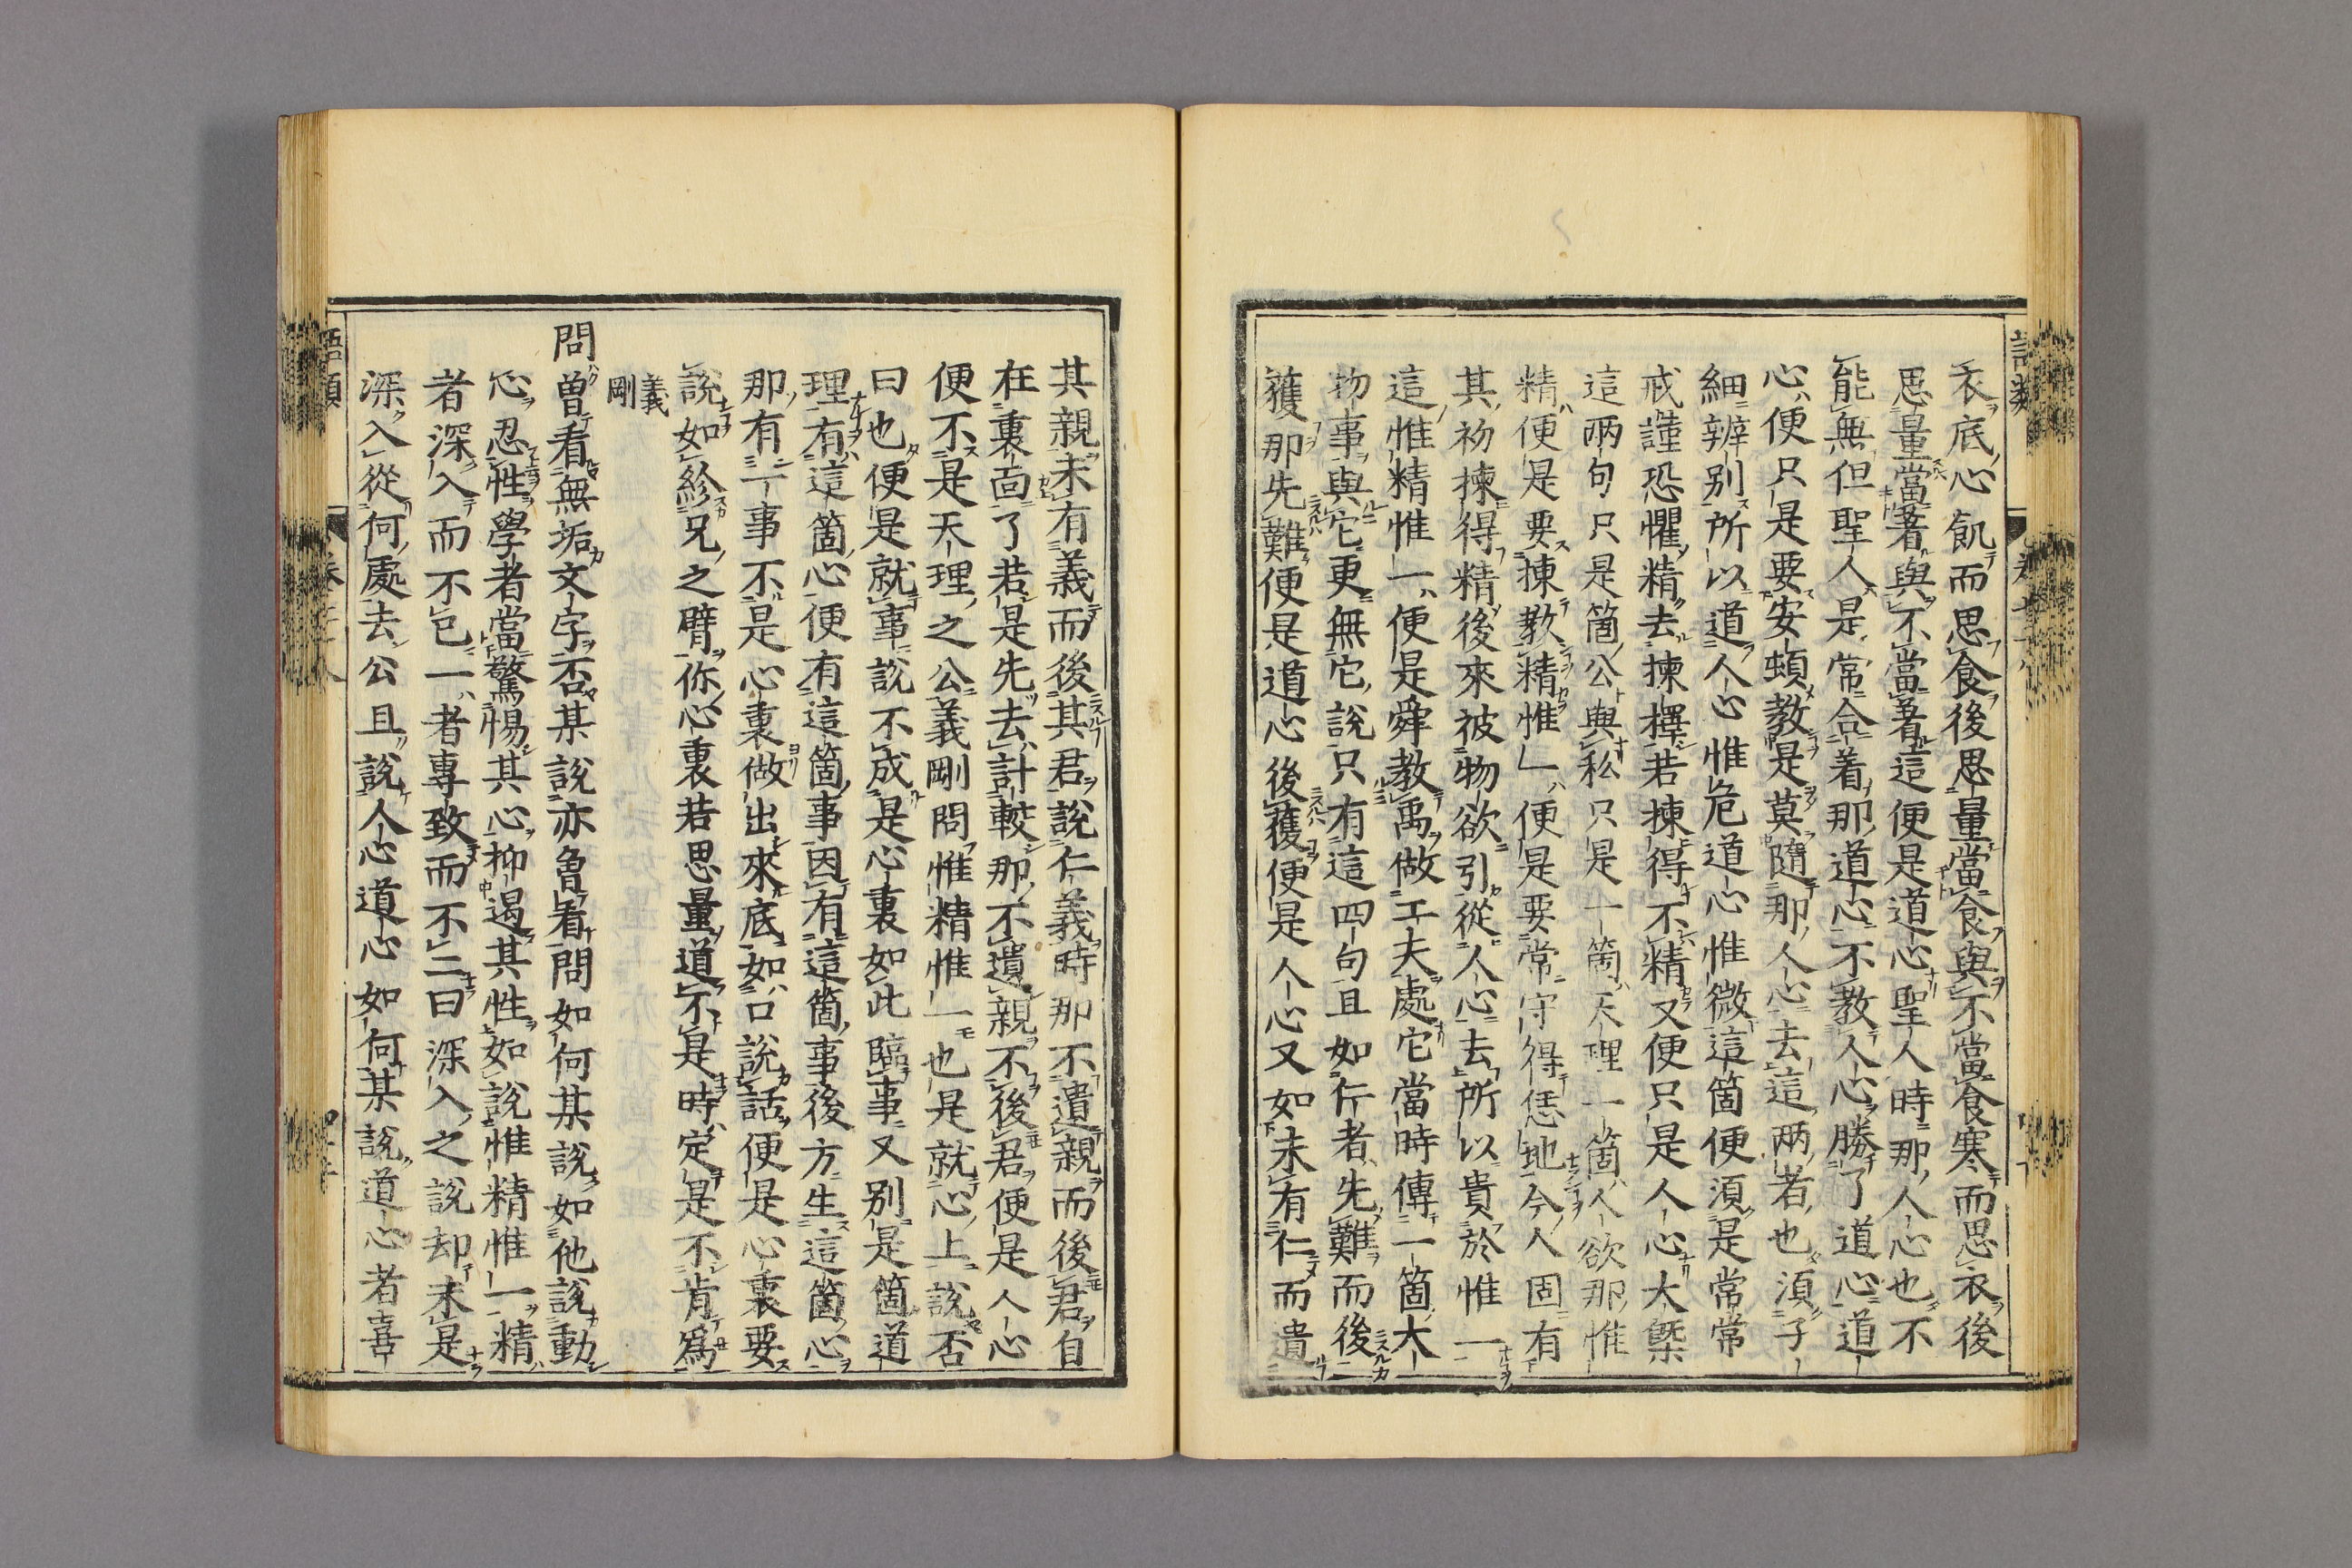 衣底心飢而思食後思量當食與不當食寒而思衣後
思量當著與不當著這便是道心聖人時那人心也不
能無但聖人是常合着那道心不教人心勝了道心道
心便只是要安頓教是莫隨那人心去這兩者也須子
細辨别所以道人心惟危道心惟微這箇便須是常常
戒謹恐懼精去揀擇若揀得不精又便只是人心大槩
這兩句只是箇公與私只是一箇天理一箇人欲那惟
精便是要揀教精惟一便是要常守得恁地今人固有
其初揀得精後來被物欲引從人心去所以貴於惟一
這惟精惟一便是舜教禹做工夫處它當時傳一箇大
物事與它更無它說只有這四句且如仁者先難而後
獲那先難便是道心後獲便是人心又如未有仁而遺
其親未有義而後其君說仁義時那不遺親而後君自
在裏面了若是先去計較那不遺親不後君便是人心
便不是天理之公義剛問惟精惟一也是就心上說否
曰也便是就事說不成是心裏如此臨事又别是箇道
理有這箇心便有這箇事因有這箇事後方生這箇心
那有一事不是心裏做出來底如口說話便是心裏要
說如紾兄之臂你心裏若思量道不是時定是不肯爲
義剛
問曾看無垢文字否某說亦曾看問如何某說如他說動
心忍性學者當驚惕其心抑遏其性如說惟精惟一精
者深入而不已一者專致而不二曰深入之說却未是
深入從何處去公且說人心道心如何某說道心者喜